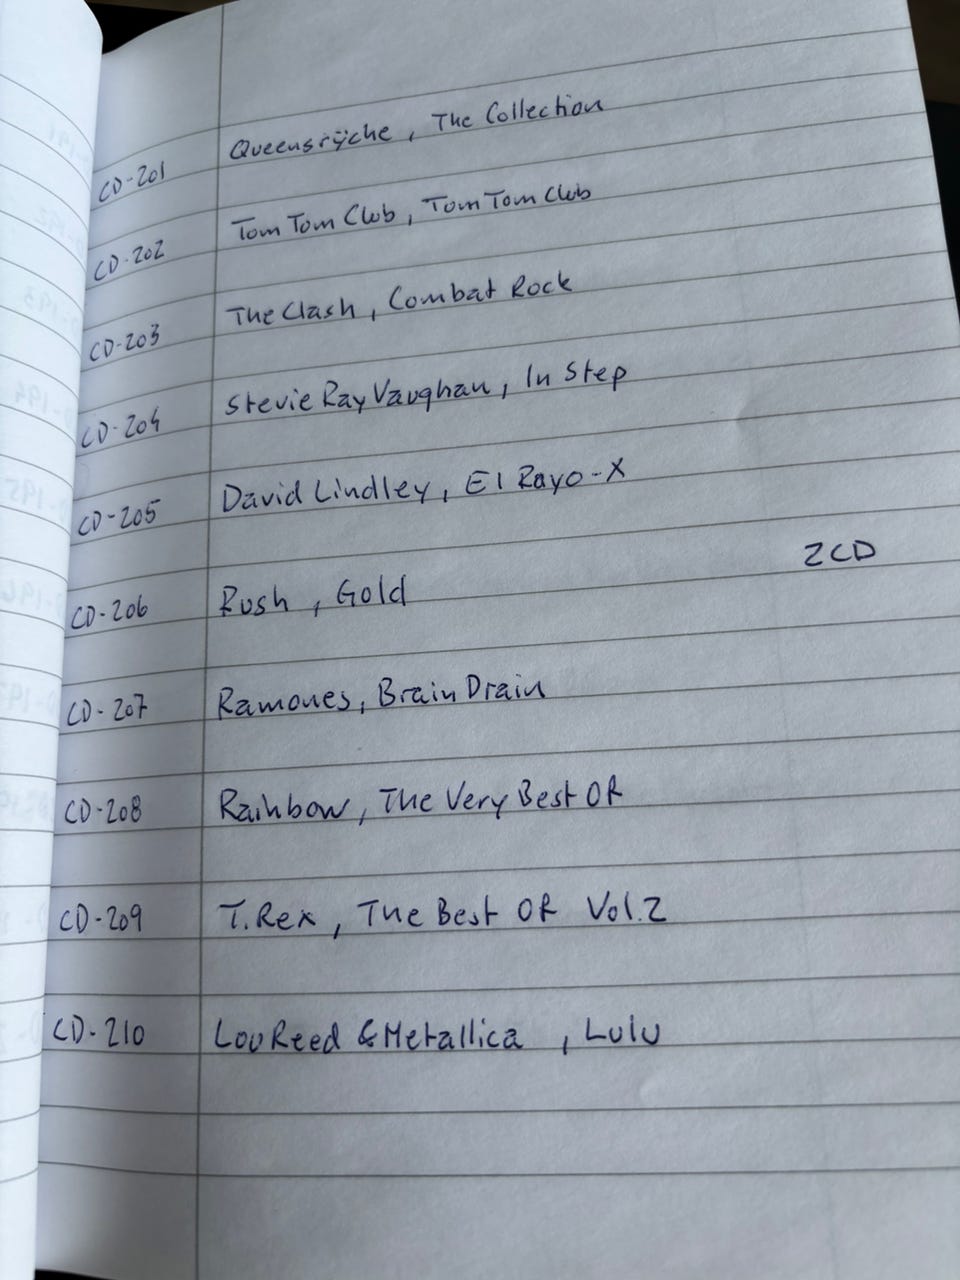 CD-201 Queensrÿche, The Collection
CD-202 Tom Tom Club, Tom Tom Club
CD-203 The Clash, Combat Rock
CD-204 Stevie Ray Vaughan, In Step
CD-205 David Lindley, El Rayo-X
CD-206 Rush, Gold 2CD
CD-207 Ramones, Brain Drain
CD-208 Rainbow, The Very Best Of
CD-209 T.Rex, The Best Of Vol.2
CD-210 Lou Reed & Metallica, Lulu